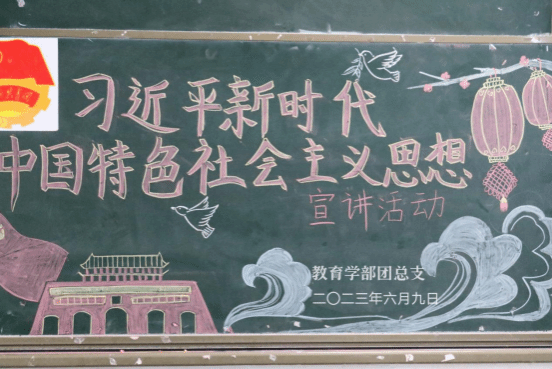 习近平新时代
中国特色社会主义思想
宣讲活动
教育学部团总支
二〇二三年六月九日